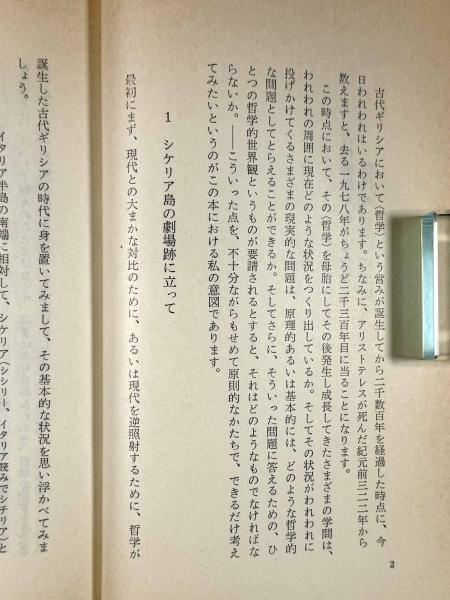 古代ギリシアにおいて〈哲学〉という営みが誕生してから二千数百年を経過した時点に、今
日われわれはいるわけであります。ちなみに、アリストテレスが死んだ紀元前三二二年から
数えますと、去る一九七八年がちょうど二千三百年目に当ることになります。
この時点において、その〈哲学〉を母胎にしてその後発生し成長してきたさまざまの学問は、
われわれの周囲に現在どのような状況をつくり出しているか。そしてその状況がわれわれに
投げかけてくるさまざまの現実的な問題は、原理的あるいは基本的には、どのような哲学的
な問題としてとらえることができるか。そしてさらに、そういった問題に答えるための、ひ
とつの哲学的世界観というものが要請されるとすると、それはどのようなものでなければな
らないか。――こういった点を、不十分ながらもせめて原則的なかたちで、できるだけ考え
てみたいというのがこの本における私の意図であります。
1 シケリア島の劇場跡に立って
最初にまず、現代との大まかな対比のために、あるいは現代を逆照射するために、哲学が
2
誕生した古代ギリシアの時代に身を置いてみまして、その基本的な状況を思い浮かべてみま
しょう。
イタリア半島の南端に相対して、シケリア(シシリー、イタリア読みでシチリア)と